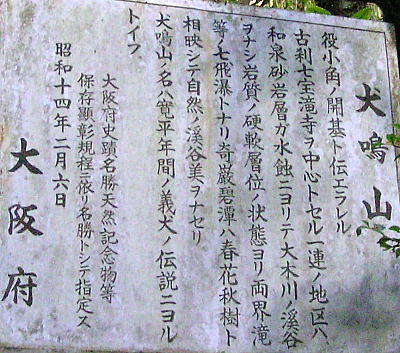 犬鳴山
役小角ノ開基ト伝エラレル
古刹七宝滝寺ヲ中心トセル一連ノ地区ハ
和泉砂岩層ガ水蝕ニヨリテ大木川ノ溪谷
ヲナシ岩質ノ硬軟層位ノ状態ヨリ両界滝
等ノ七飛瀑トナリ奇巌碧潭ハ春花秋樹ト
相映シテ自然ノ溪谷美ヲナセリ
犬鳴山ノ名ハ寛平年間ノ義犬ノ伝説ニヨル
トイフ
大阪府史蹟名勝天然記念物等
保存顕彰規程ニ依リ名勝トシテ指定ス
昭和十四年二月六日
大阪府